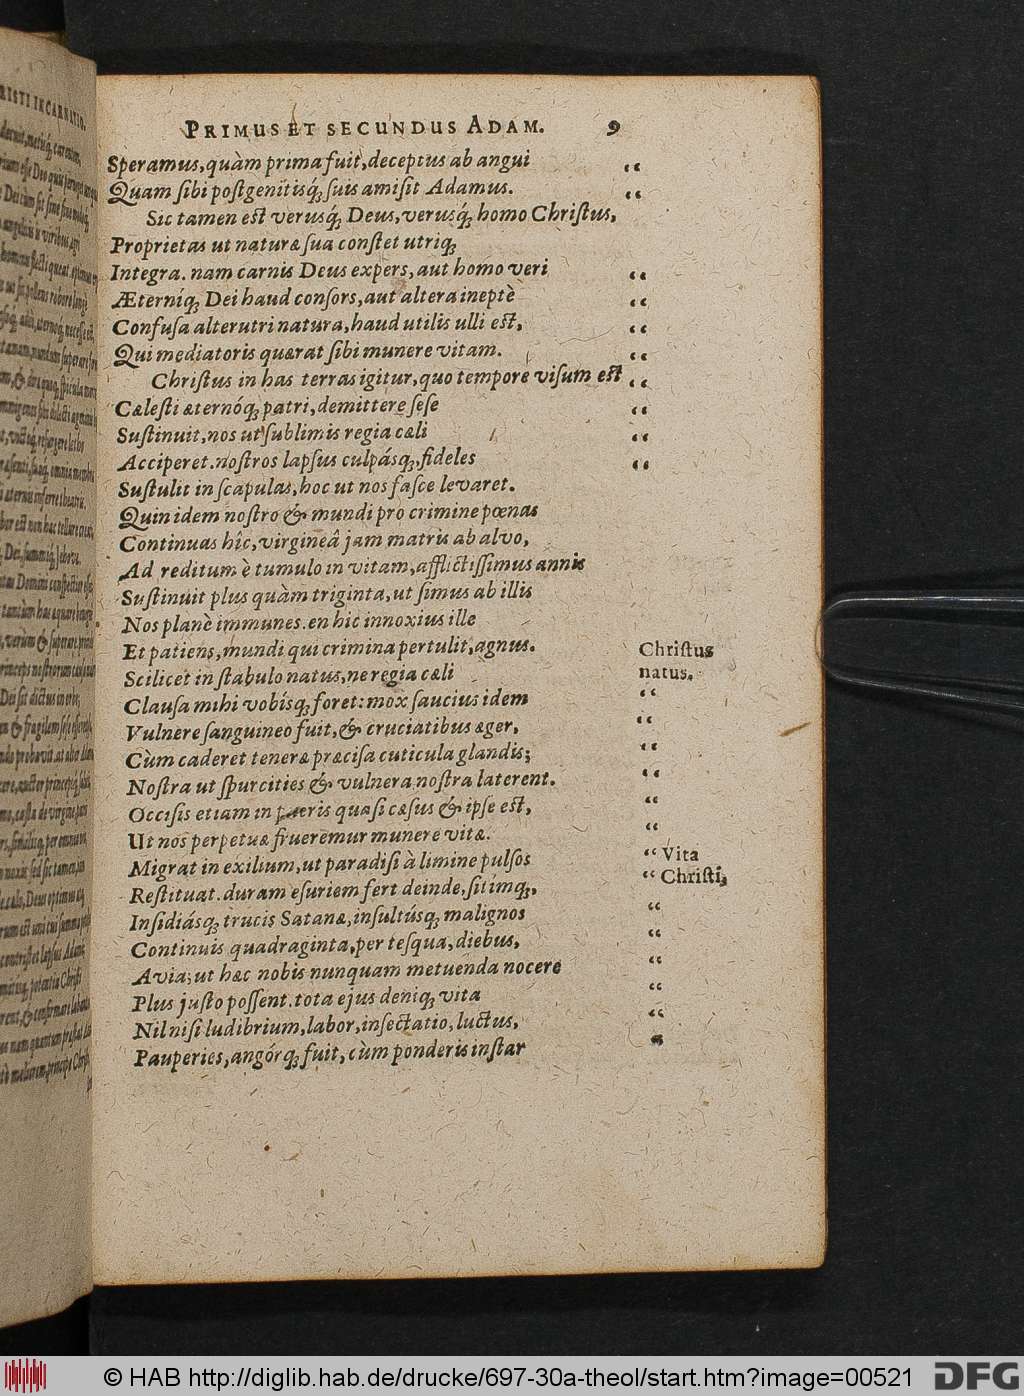 PRIMUS ET SECUNDUS ADAM. 9
Speramus, quàm prima fuit, deceptus ab angui “
Quam sibi postgenitisq́; suis amisit Adamus. “
Sic tamen est verusq́; Deus, verusq́; homo Christus,
Proprietas ut naturæ sua constet utriq;
Integra. nam carnis Deus expers, aut homo veri “
Æterniq́; Dei haud consors, aut altera ineptè “
Confusa alterutri natura, haud utilis ulli est, “
Qui mediatoris quærat sibi munere vitam. “
Christus in has terras igitur, quo tempore visum est “
Cælesti æternóq; patri, demittere sese “
Sustinuit, nos ut sublimis regia cæli “
Acciperet. nostros lapsus culpásq;, fideles “
Sustulit in scapulas, hoc ut nos fasce levaret.
Quin idem nostro & mundi pro crimine pœnas
Continuas hîc, virgineâ jam matris ab alvo,
Ad reditum è tumulo in vitam, afflictissimus annis
Sustinuit plus quàm triginta, ut simus ab illis
Nos planè immunes. en hic innoxius ille
Et patiens, mundi qui crimina pertulit, agnus. Christus
Scilicet in stabulo natus, ne regia cæli natus.
Clausa mihi vobisq́; foret: mox saucius idem “
Vulnere sanguineo fuit, & cruciatibus æger, “
Cùm caderet teneræ præcisa cuticula glandis; “
Nostra ut spurcities & vulnera nostra laterent. “
Occisis etiam in pueris quasi cæsus & ipse est, “
Ut nos perpetuæ frueremur munere vitæ. “
Migrat in exilium, ut paradisi à limine pulsos “ Vita
Restituat. duram esuriem fert deinde, sitimq́;, “ Christi,
Insidiásq; trucis Satanæ, insultúsq; malignos “
Continuis quadraginta, per tesqua, diebus, “
Avia; ut hæc nobis nunquam metuenda nocere “
Plus justo possent. tota ejus deniq; vita “
Nil nisi ludibrium, labor, insectatio, luctus, “
Pauperies, angórq; fuit, cùm ponderis instar “
© HAB http://diglib.hab.de/drucke/697-30a-theol/start.htm?image=00521
DFG